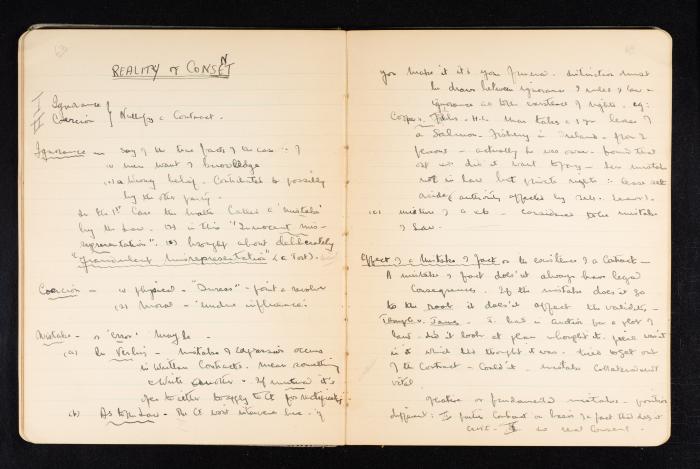 REALITY OF CONSENT
I Ignorance
II Coercion } Nullifies a Contract.
Ignorance — say of the true facts of the case :- if
(1) mere want of knowledge
(2) a wrong belief. Contributed to possibly
by the other party.
In the 1st Case the matter Called a 'mistake'
by the Law. (2) is this "Innocent mis-
representation". (3) brought about deliberately
"Fraudulent misrepresentation" (a Tort).
Coercion — (1) physical - "Duress" - point a revolver
(2) Moral - 'undue influence'
Mistake — or 'error' may be -
(a) In Verbis - mistake of expression occurs
in Written Contracts. mean something
& write another - If mutual it's
open to either to apply to Ct for rectification
(b) As to Law - The Ct wont intervene here - if
you make it it's your funeral. distinction must
be drawn between ignorance of rules of law &
ignorance as to the existence of rights. eg:
Cooper v. Phibbs - H.L. Man takes a 3 yr lease of
a Salmon-Fishing in Ireland - from
person - actually he was owner - found that
out & didn't want to pay - his mistake
not in law but private rights :- lease set
aside
(c) mistake of a
of Law.
Effect of a Mistake of Fact on the existence of a Contract —
A mistake of fact does'nt always have legal
Consequences. If the mistake does'nt go
to the root it does'nt affect the validity —
at auction for a plot of
land - did'nt look at plan & bought it.
in it which he thought it was. tried to get out
of the Contract - Could'nt - mistake Collateral & not
vital.
operative or fundamental mistake - position
different: If parties Contract on basis of a fact that does'nt
exist - no real Consent.